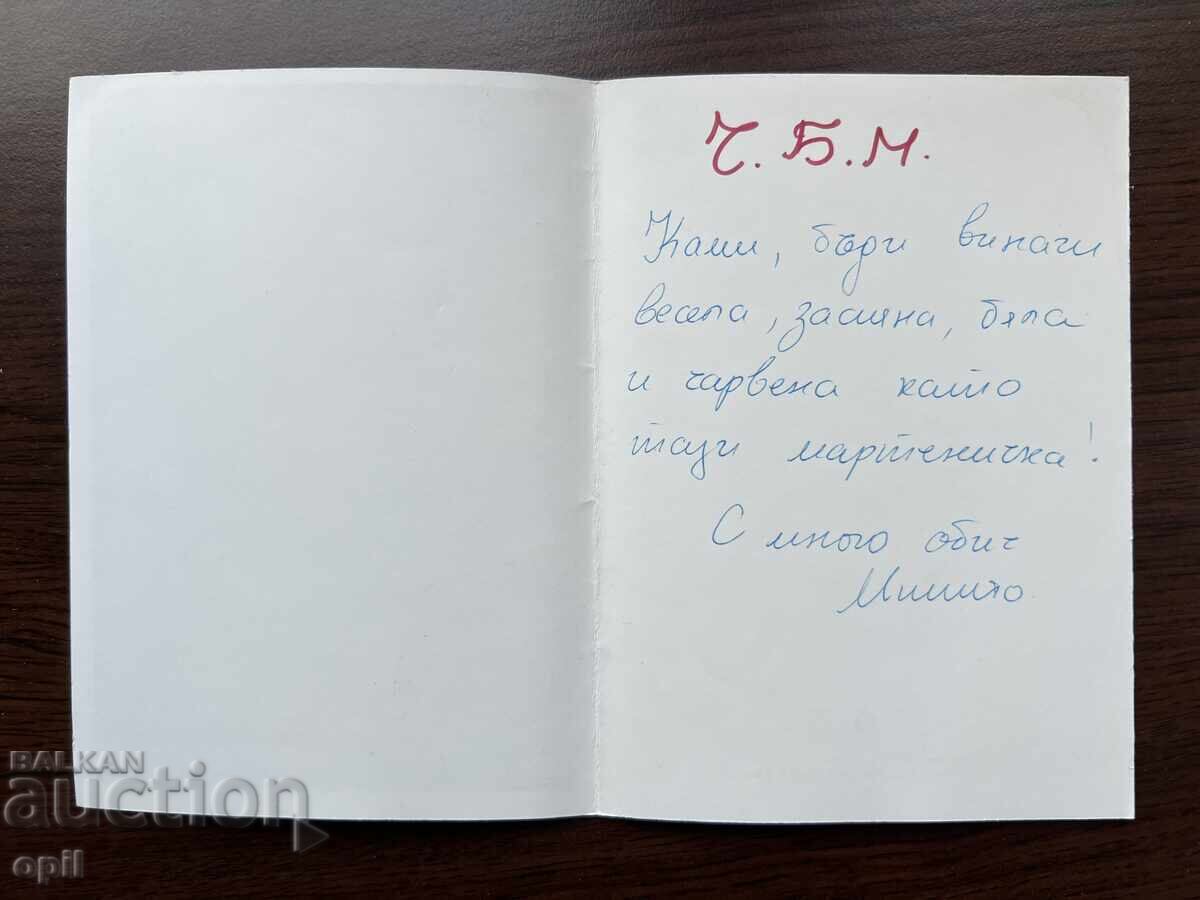 Ч.Б.М.
Ками, бъди винаги
весела, засмяна, бяла
и червена като
тази мартеничка!
С много обич
Мимито
BALKAN
auction
opil